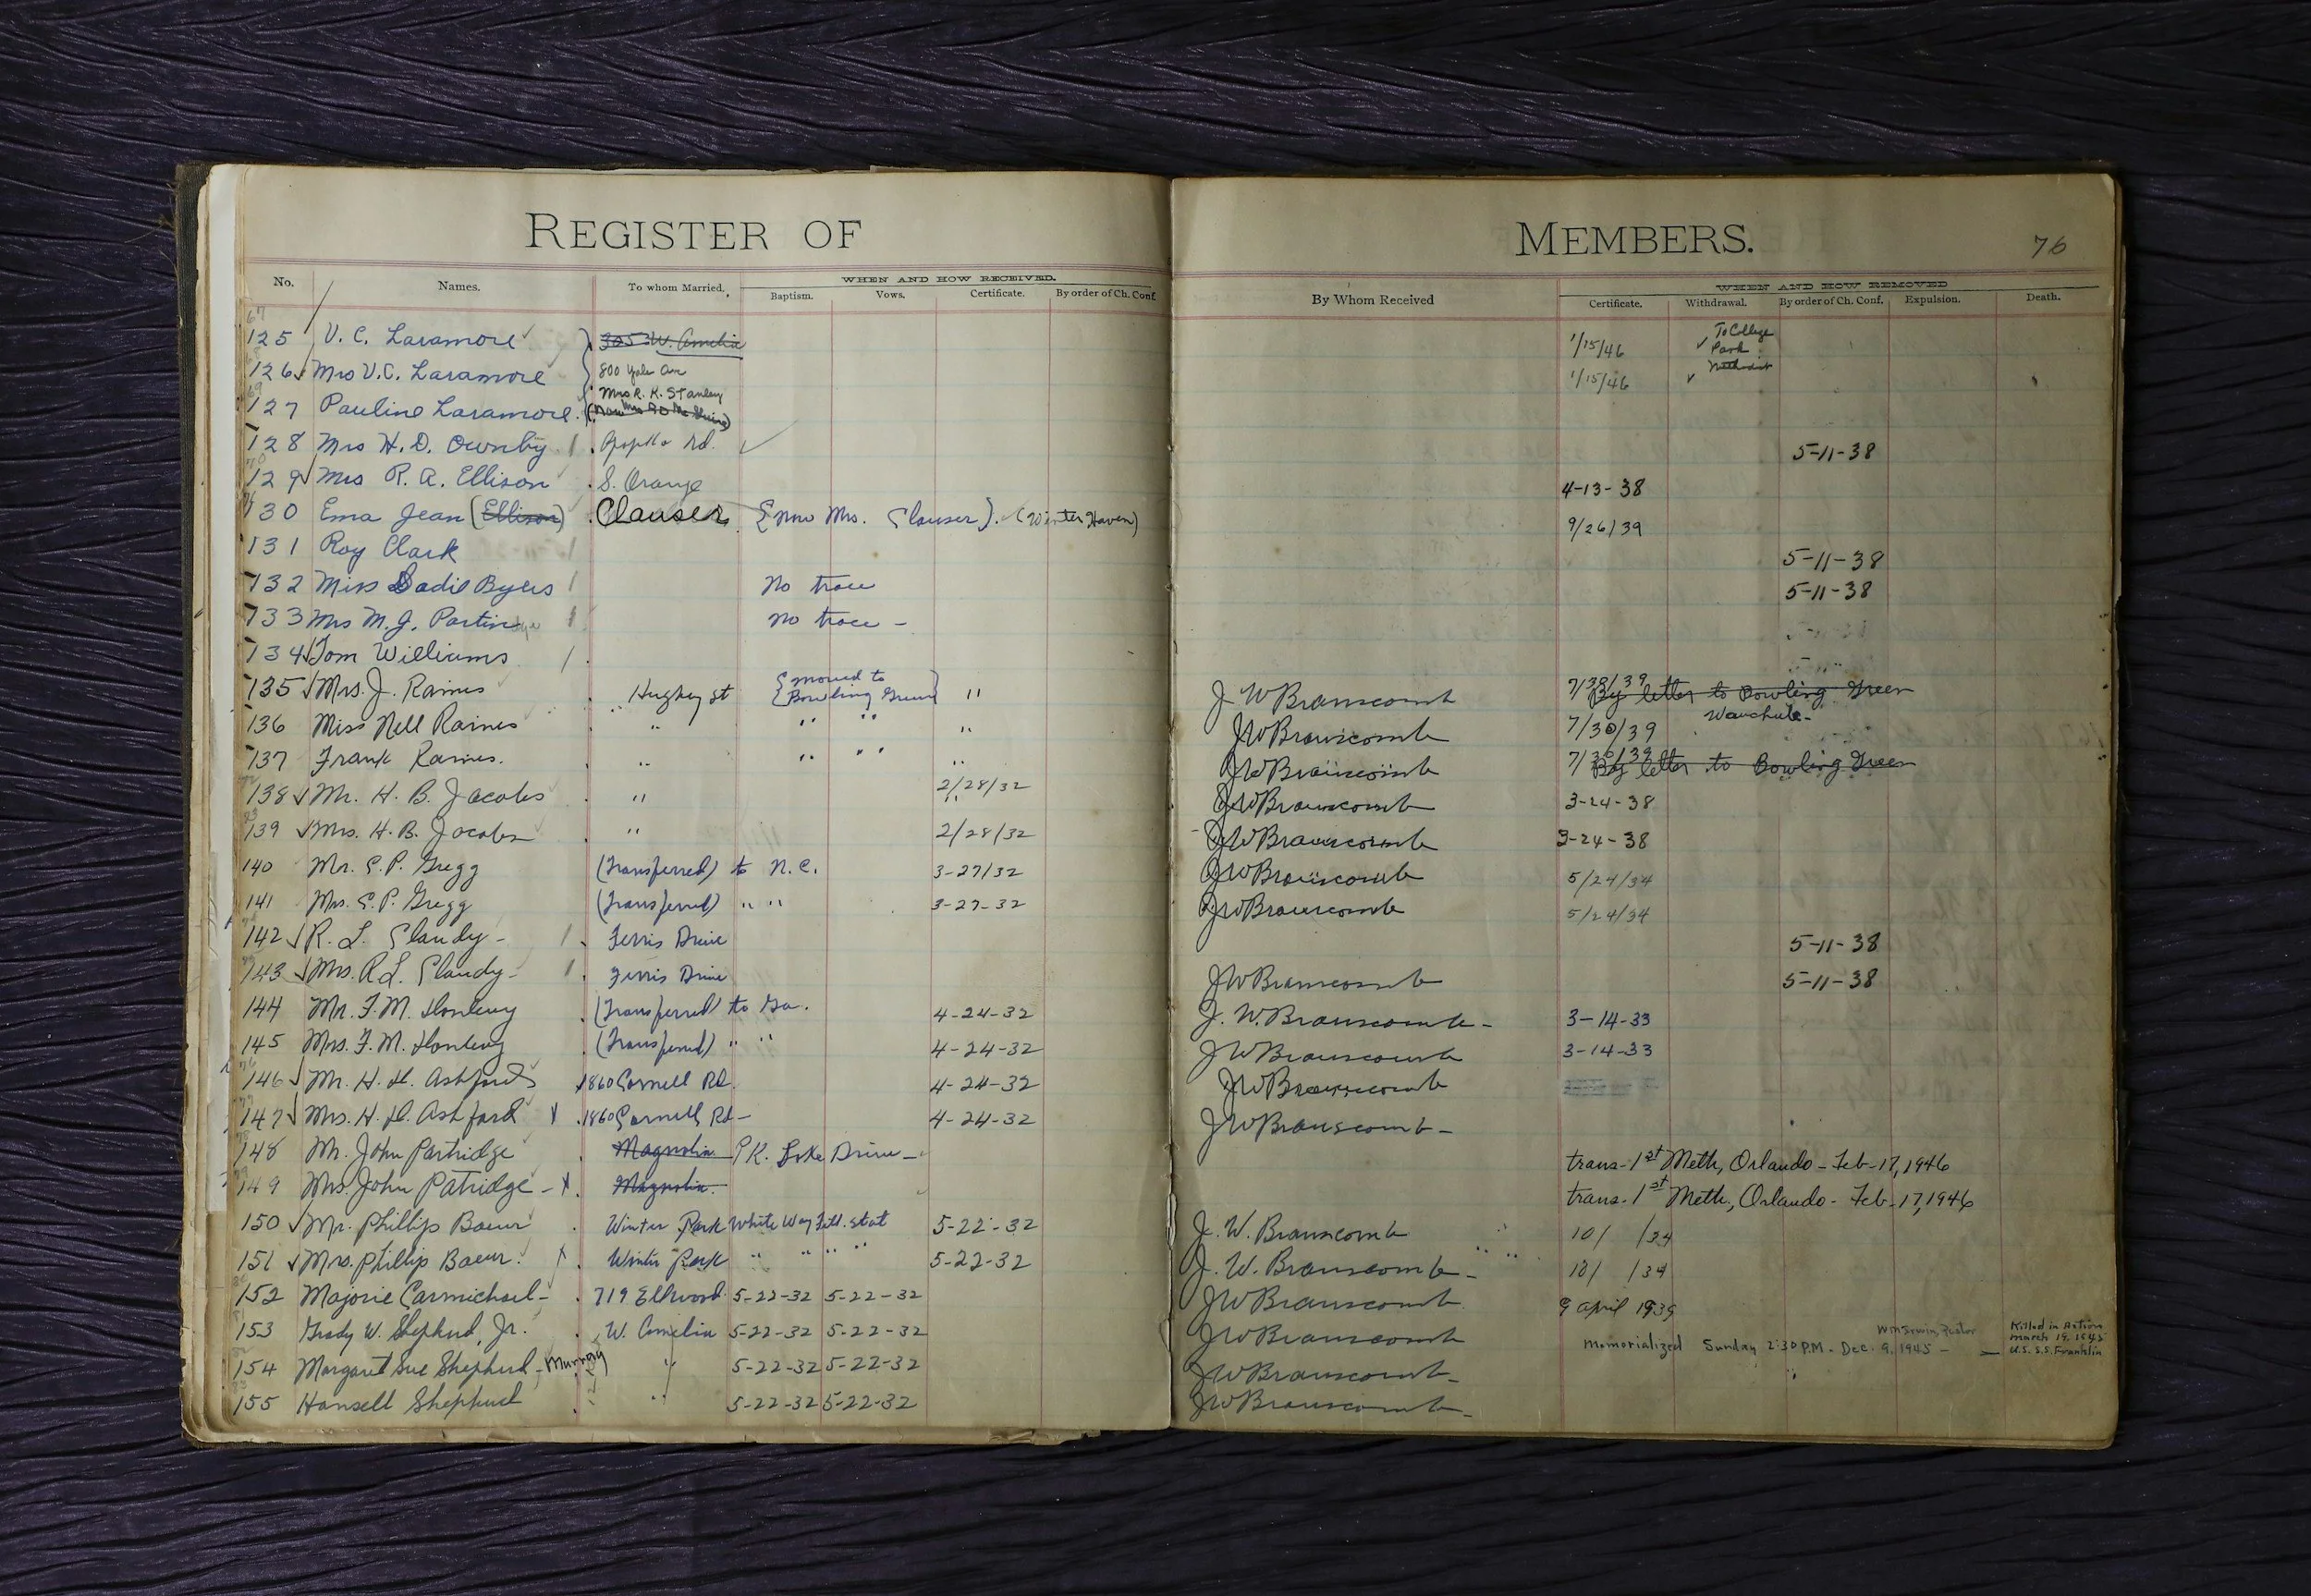 REGISTER OF MEMBERS. 76
No. Names. To whom Married. WHEN AND HOW RECEIVED. By Whom Received WHEN AND HOW REMOVED
Baptism. Vows. Certificate. By order of Ch. Conf. Certificate. Withdrawal. By order of Ch. Conf. Expulsion. Death.
67
125 V. C. Laramore 305 W. Amelia 1/15/46 To College Park Methodist
126 Mrs V.C. Laramore 800 Yale Ave 1/15/46
127 Pauline Laramore. Mrs R. K. Stanley
128 Mrs H. D. Ownby Rd. 5-11-38
129 Mrs R. A. Ellison S. Orange 4-13-38
130 Ema Jean (Ellison) Clauser {now Mrs. Clauser}. (Winter Haven) 9/26/39
131 Roy Clark 5-11-38
132 Miss Sadie Byers No trace 5-11-38
133 Mrs M. J. No trace -
134 Tom Williams
135 Mrs. J. Raines Hughey St {moved to Bowling Green} " J W Branscomb 7/30/39 By letter to Bowling Green
136 Miss Nell Raines " " " " JW Branscomb 7/30/39 Wauchula-
137 Frank Raines. " " " " JW Branscomb 7/30/39 By letter to Bowling Green
138 Mr. H. B. Jacobs " 2/28/32 JW Branscomb 3-24-38
139 Mrs. H. B. Jacobs " 2/28/32 JW Branscomb 3-24-38
140 Mr. C. P. Gregg (Transferred) to N.C. 3-27/32 JW Branscomb 5/24/34
141 Mrs. C. P. Gregg (Transferred) " " 3-27-32 JW Branscomb 5/24/34
142 R. L. Clandy- Ferris Drive 5-11-38
143 Mrs. R L. Clandy- Ferris Drive JW Branscomb 5-11-38
144 Mr. F. M. (Transferred) to Ga. 4-24-32 J. W. Branscomb- 3-14-33
145 Mrs. F. M. (Transferred) " " 4-24-32 JW Branscomb 3-14-33
146 Mr. H. H. Ashford 1860 Cornell Rd. 4-24-32 JW Branscomb
147 Mrs. H. H. Ashford X 1860 Cornell Rd- 4-24-32 JW Branscomb-
148 Mr. John Partridge Magnolia PK. Lake Drive- trans-1st Meth, Orlando-Feb-17, 1946
149 Mrs. John Patridge- X. Magnolia. trans-1st Meth., Orlando- Feb-17, 1946
150 Mr. Phillip Baeur Winter Park White Way Fill. Stat 5-22-32 J. W. Branscomb 10/ /34
151 Mrs. Phillip Baeur. X Winter Park " " " " 5-22-32 J. W. Branscomb- 10/ /34
152 Majorie Carmichael- 719 Ellwood 5-22-32 5-22-32 JW Branscomb 9 April 1939
153 Grady W. Shepherd, Jr. W. Amelia 5-22-32 5-22-32 JW Branscomb Memorialized Sunday 2:30 P.M. - Dec. 9, 1945 - Wm Irwin, Pastor Killed in Action March 19, 1945 U.S.S. Franklin
154 Margaret Sue Shepherd-Murray " 5-22-32 5-22-32 JW Branscomb-
155 Hansell Shepherd " 5-22-32 5-22-32 JW Branscomb-